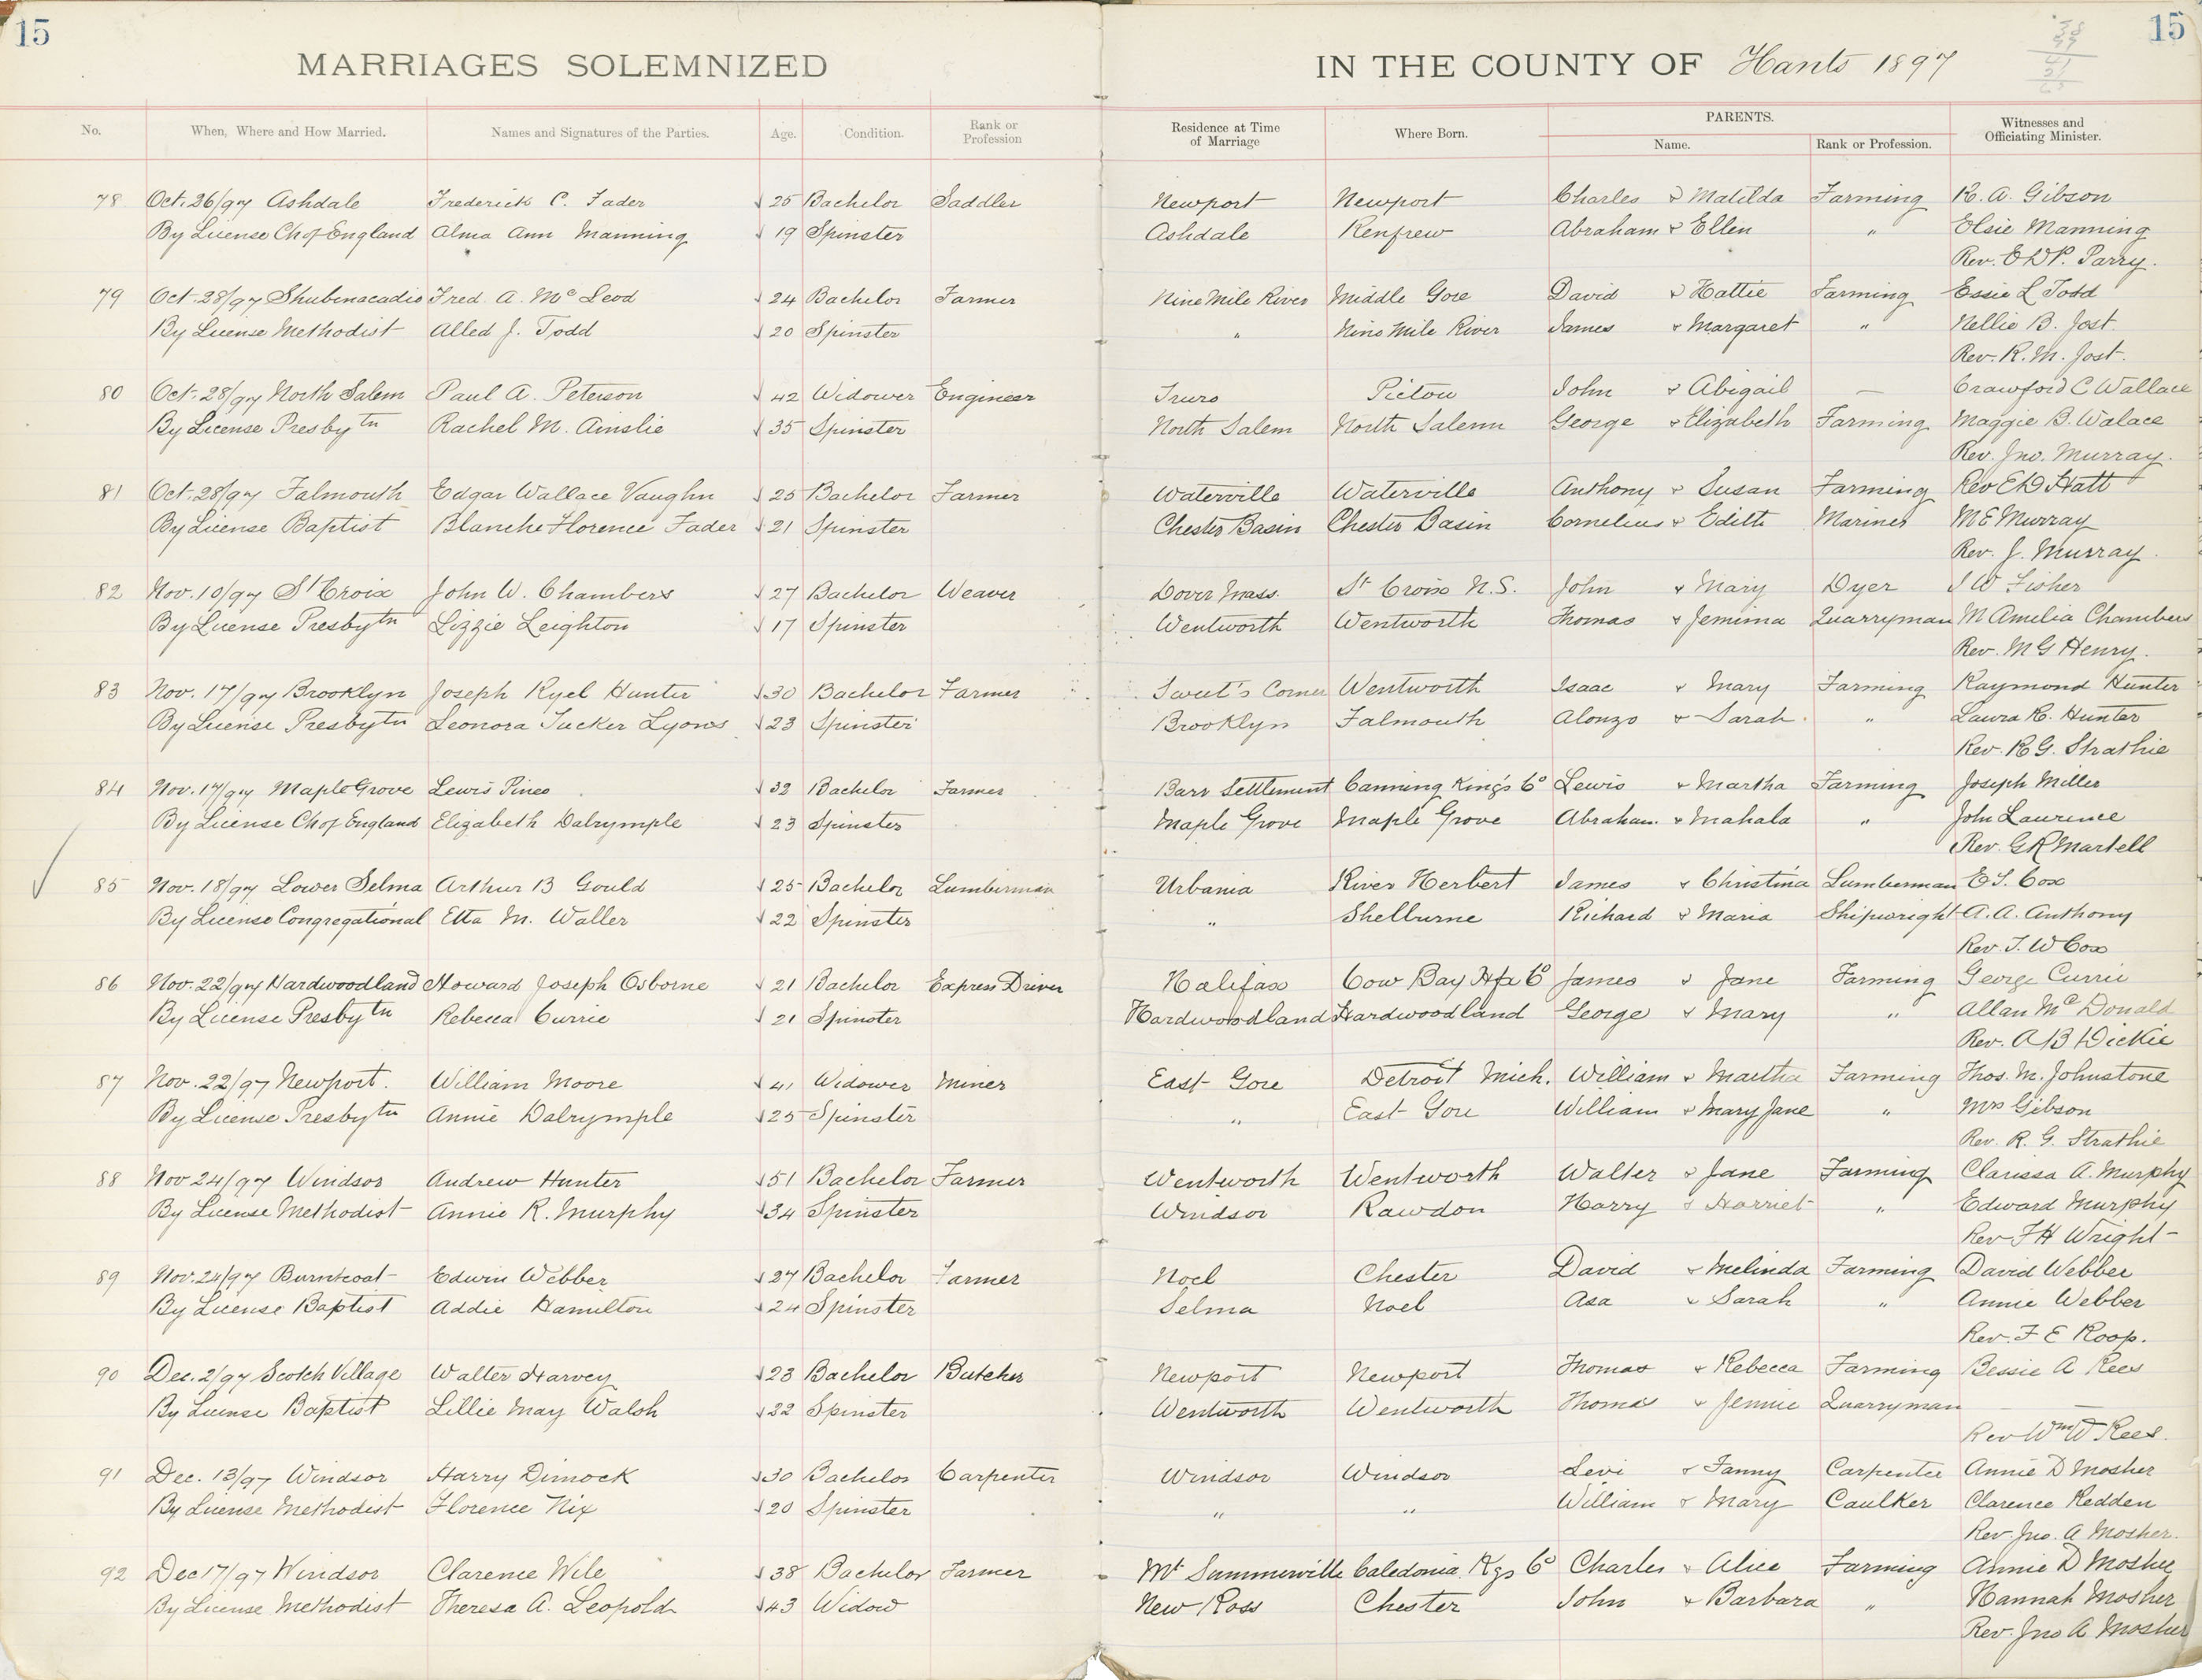 15
15
MARRIAGES SOLEMNIZED IN THE COUNTY OF Hants 1897
No. When, Where and How Married. Names and Signatures of the Parties. Age. Condition. Rank or Profession Residence at Time of Marriage Where Born. PARENTS. Name. Rank or Profession. Witnesses and Officiating Minister.
78 Oct. 26/97 Ashdale Frederick C. Fader 25 Bachelor Saddler Newport Newport Charles & Matilda Farming R. A. Gibson
By License Ch of England Alma Ann Manning 19 Spinster Ashdale Renfrew Abraham & Ellen " Elsie Manning
Rev. O W P. Parry.
79 Oct. 28/97 Shubenacadie Fred. A. McLeod 24 Bachelor Farmer Nine Mile River Middle Gore David & Hattie Farming Essie L Todd
By License Methodist Alled J. Todd 20 Spinster " Nine Mile River James & Margaret " Nellie B. Jost.
Rev. R. M. Jost.
80 Oct. 28/97 North Salem Paul A. Peterson 42 Widower Engineer Truro Pictou John & Abigail — Crawford C Wallace
By License Presbytn Rachel M. Ainslie 35 Spinster North Salem North Salem George & Elizabeth Farming Maggie B. Walace
Rev. Jno. Murray.
81 Oct. 28/97 Falmouth Edgar Wallace Vaughn 25 Bachelor Farmer Waterville Waterville Anthony & Susan Farming Rev E D Hatt
By License Baptist Blanche Florence Fader 21 Spinster Chester Basin Chester Basin Cornelius & Edith Mariner M E Murray
Rev. J. Murray.
82 Nov. 10/97 St Croix John W. Chambers 27 Bachelor Weaver Dover Mass. St Croix N.S. John & Mary Dyer W Fisher
By License Presbytn Lizzie Leighton 17 Spinster Wentworth Wentworth Thomas & Jemima Quarryman M Amelia Chambers
Rev. M G Henry.
83 Nov. 17/97 Brooklyn Joseph Ryel Hunter 30 Bachelor Farmer Sweet's Corner Wentworth Isaac & Mary Farming Raymond Hunter
By License Presbytn Leonora Tucker Lyons 23 Spinster Brooklyn Falmouth Alonzo & Sarah " Laura R. Hunter
Rev. R G. Strathie
84 Nov. 17/97 Maple Grove Lewis Pineo 32 Bachelor Farmer Barr Settlement Canning King's Co Lewis & Martha Farming Joseph Miller
By License Ch of England Elizabeth Dalrymple 23 Spinster Maple Grove Maple Grove Abraham & Mahala " John Laurence
Rev. G R Martell
85 Nov. 18/97 Lower Selma Arthur B Gould 25 Bachelor Lumberman Urbania River Herbert James & Christina Lumberman E T. Cox
By License Congregational Etta M. Waller 22 Spinster " Shelburne Richard & Maria Shipwright A. A. Anthony
Rev. J. W Cox
86 Nov. 22/97 Hardwoodland Howard Joseph Osborne 21 Bachelor Express Driver Halifax Cow Bay Hfx Co James & Jane Farming George Currie
By License Presbytn Rebecca Currie 21 Spinster Hardwoodland Hardwoodland George & Mary " Allan McDonald
Rev. A B Dickie
87 Nov. 22/97 Newport. William Moore 41 Widower Miner East Gore Detroit Mich. William & Martha Farming Thos. M. Johnstone
By License Presbytn Annie Dalrymple 25 Spinster " East Gore William & Mary Jane " Mrs Gibson
Rev. R. G. Strathie
88 Nov 24/97 Windsor Andrew Hunter 51 Bachelor Farmer Wentworth Wentworth Walter & Jane Farming Clarissa A. Murphy
By License Methodist Annie R. Murphy 34 Spinster Windsor Rawdon Harry & Harriet " Edward Murphy
Rev F H Wright
89 Nov. 24/97 Burntcoat Edwin Webber 27 Bachelor Farmer Noel Chester David & Melinda Farming David Webber
By License Baptist Addie Hamilton 24 Spinster Selma Noel Asa & Sarah " Annie Webber
Rev. F E Roop.
90 Dec. 2/97 Scotch Village Walter Harvey 23 Bachelor Butcher Newport Newport Thomas & Rebecca Farming Bessie A Rees
By License Baptist Lillie May Walsh 22 Spinster Wentworth Wentworth Thomas & Jennie Quarryman —
Rev Wm W Rees.
91 Dec. 13/97 Windsor Harry Dimock 30 Bachelor Carpenter Windsor Windsor Levi & Fanny Carpenter Annie D Mosher
By License Methodist Florence Nix 20 Spinster " " William & Mary Caulker Clarence Redden
Rev. Jno. A Mosher.
92 Dec 17/97 Windsor Clarence Wile 38 Bachelor Farmer Mt Summerville Caledonia Kgs Co Charles & Alice Farming Annie D Mosher
By License Methodist Theresa A. Leopold 43 Widow New Ross Chester John & Barbara " Hannah Mosher
Rev. Jno A Mosher